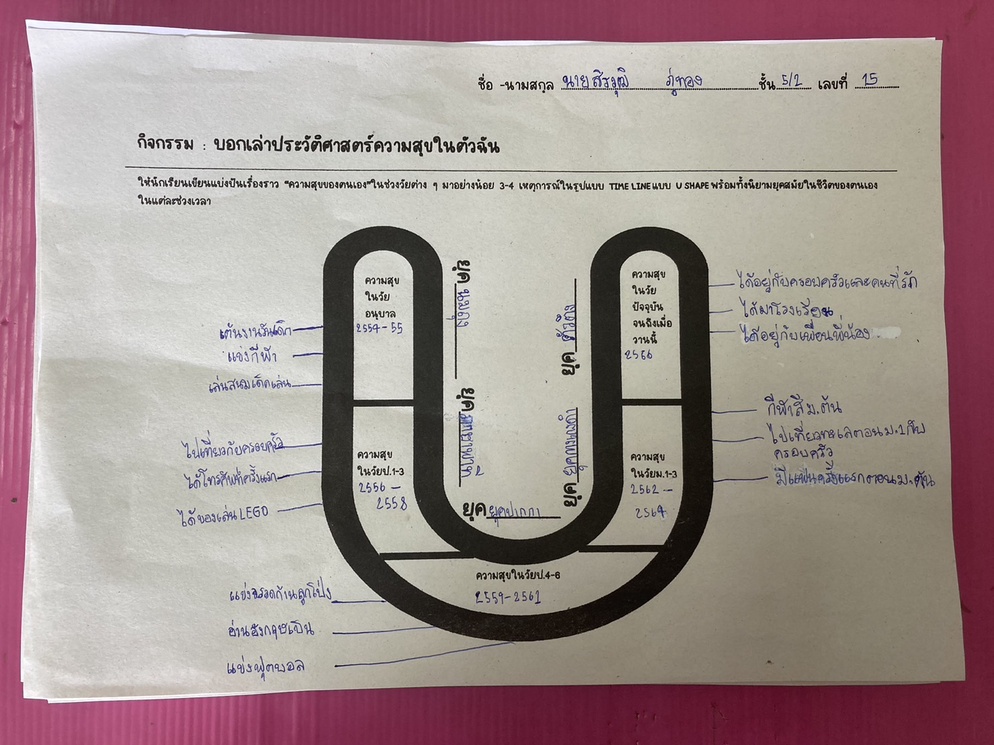 ชื่อ -นามสกุล นายสิรวุฒิ ภู่ทอง ชั้น 5/2 เลขที่ 15
กิจกรรม : บอกเล่าประวัติศาสตร์ความสุขในตัวฉัน
ให้นักเรียนเขียนแบ่งปันเรื่องราว "ความสุขของตนเอง"ในช่วงวัยต่าง ๆ มาอย่างน้อย 3-4 เหตุการณ์ในรูปแบบ TIME LINE แบบ U SHAPE พร้อมทั้งนิยามยุคสมัยในชีวิตของตนเอง
ในแต่ละช่วงเวลา
ความสุข
ในวัย
อนุบาล
2554-55
ยุค นมผง
เต้นงานวันเด็ก
แข่งกีฬา
เล่นสนามเด็กเล่น
ความสุข
ในวัยป.1-3
2556 –
2558
ยุค
ไปเที่ยวกับครอบครัว
ได้โทรศัพท์ครั้งแรก
ได้ของเล่น LEGO
ความสุขในวัยป.4-6
2559-2561
ยุค ยุคปากกา
แข่งจรวดก้านลูกโป่ง
อ่านอังกฤษเป็น
แข่งฟุตบอล
ความสุข
ในวัยม.1-3
2562 –
2564
ยุค
กีฬาสี ม.ต้น
ไปเที่ยวทะเลตอน ม.1 กับ
ครอบครัว
มีแฟนครั้งแรกตอน ม.ต้น
ความสุข
ในวัย
ปัจจุบัน
จนถึงเมื่อ
วานนี้
2566
ยุค
ได้อยู่กับครอบครัวและคนที่รัก
ได้มาโรงเรียน
ได้อยู่กับเพื่อนพี่น้อง